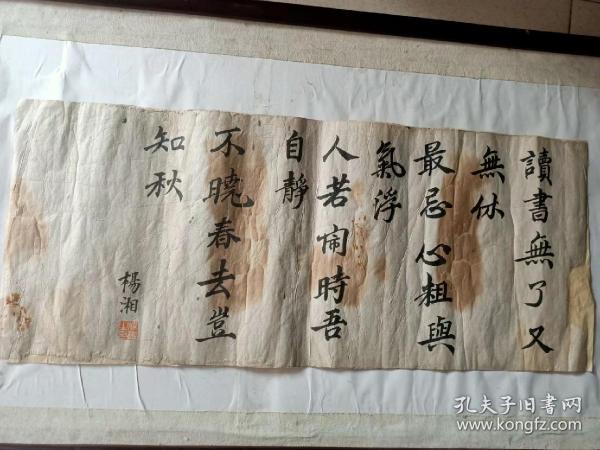 讀書無了又
無休
最忌心粗與
氣浮
人若鬧時吾
自靜
不曉春去豈
知秋
楊湘
孔夫子旧書网
www.kongfz.com